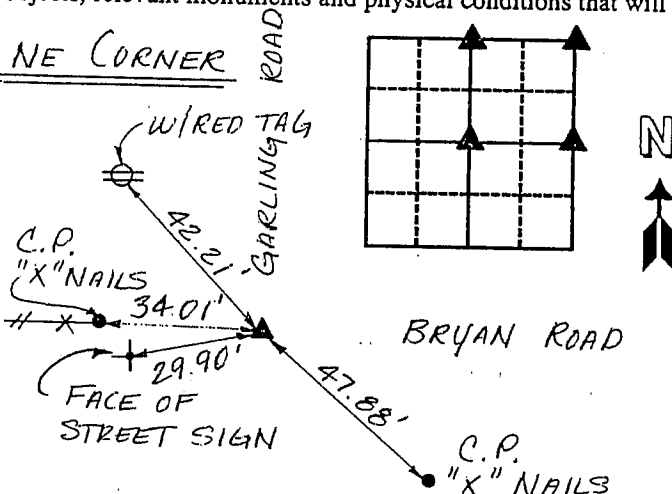 relevant monuments and physical conditions that will
NE CORNER
GARLING ROAD
W/RED TAG
N
42.21'
C.P.
"X" NAILS
34.01'
BRYAN ROAD
29.90'
FACE OF
STREET SIGN
47.88'
C.P.
"X" NAILS